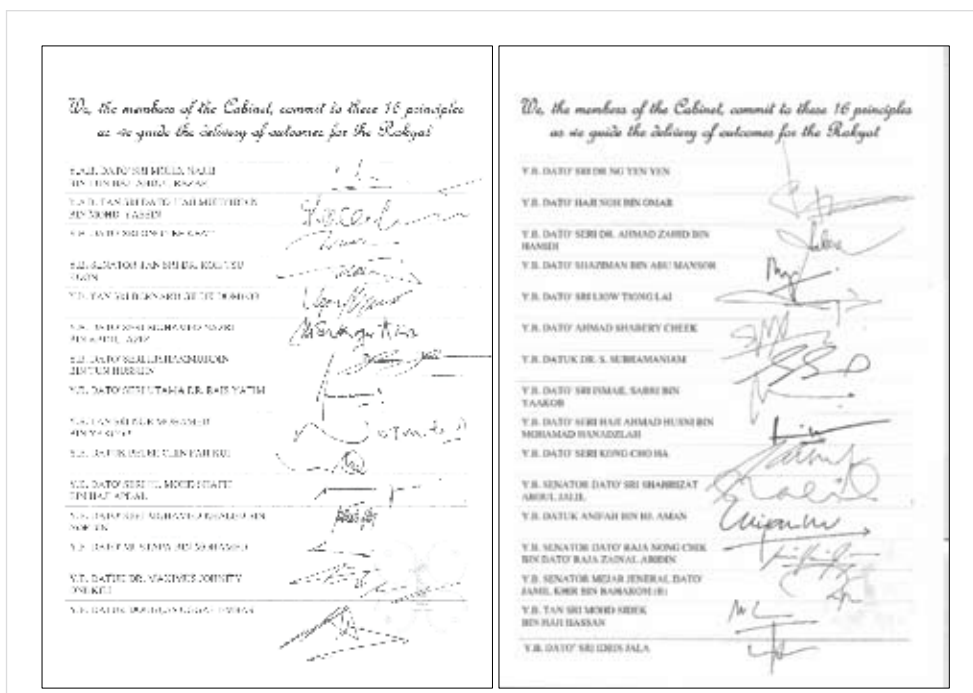 We, the members of the Cabinet, commit to these 16 principles
as we guide the delivery of outcomes for the Rakyat
Y.A.B. DATO' SRI MOHD NAJIB
BIN TUN HAJI ABDUL RAZAK
Y.A.B. TAN SRI DATO' HAJI MUHYIDDIN
BIN MOHD YASSIN
Y.B. DATO' SRI ONG TEE KEAT
Y.B. SENATOR TAN SRI DR. KOH TSU
KOON
Y.B. TAN SRI BERNARD GILUK DOMPOK
Y.B. DATO' SERI MOHAMED NAZRI
BIN ABDUL AZIZ
Y.B. DATO' SERI HISHAMMUDDIN
BIN TUN HUSSEIN
Y.B. DATO' SERI UTAMA DR. RAIS YATIM
Y.B. TAN SRI NOR MOHAMED
BIN YAKCOP
Y.B. DATUK PETER CHIN FAH KUI
Y.B. DATO' SERI HJ. MOHD SHAFIE
BIN HAJI APDAL
Y.B. DATO' SERI MOHAMED KHALED BIN
NORDIN
Y.B. DATO' MUSTAPA BIN MOHAMED
Y.B. DATUK DR. MAXIMUS JOHNITY
ONGKILI
Y.B. DATUK DOUGLAS UGGAH EMBAS
We, the members of the Cabinet, commit to these 16 principles
as we guide the delivery of outcomes for the Rakyat
Y.B. DATO' SRI DR NG YEN YEN
Y.B. DATO' HAJI NOH BIN OMAR
Y.B. DATO' SERI DR. AHMAD ZAHID BIN
HAMIDI
Y.B. DATO' SHAZIMAN BIN ABU MANSOR
Y.B. DATO' SRI LIOW TIONG LAI
Y.B. DATO' AHMAD SHABERY CHEEK
Y.B. DATUK DR. S. SUBRAMANIAM
Y.B. DATO' SRI ISMAIL SABRI BIN
YAAKOB
Y.B. DATO' SERI HAJI AHMAD HUSNI BIN
MOHAMAD HANADZLAH
Y.B. DATO' SERI KONG CHO HA
Y.B. SENATOR DATO' SRI SHAHRIZAT
ABDUL JALIL
Y.B. DATUK ANIFAH BIN HJ. AMAN
Y.B. SENATOR DATO' RAJA NONG CHIK
BIN DATO' RAJA ZAINAL ABIDIN
Y.B. SENATOR MEJAR JENERAL DATO'
JAMIL KHIR BIN BAHAROM (B)
Y.B. TAN SRI MOHD SIDEK
BIN HAJI HASSAN
Y.B. DATO' SRI IDRIS JALA